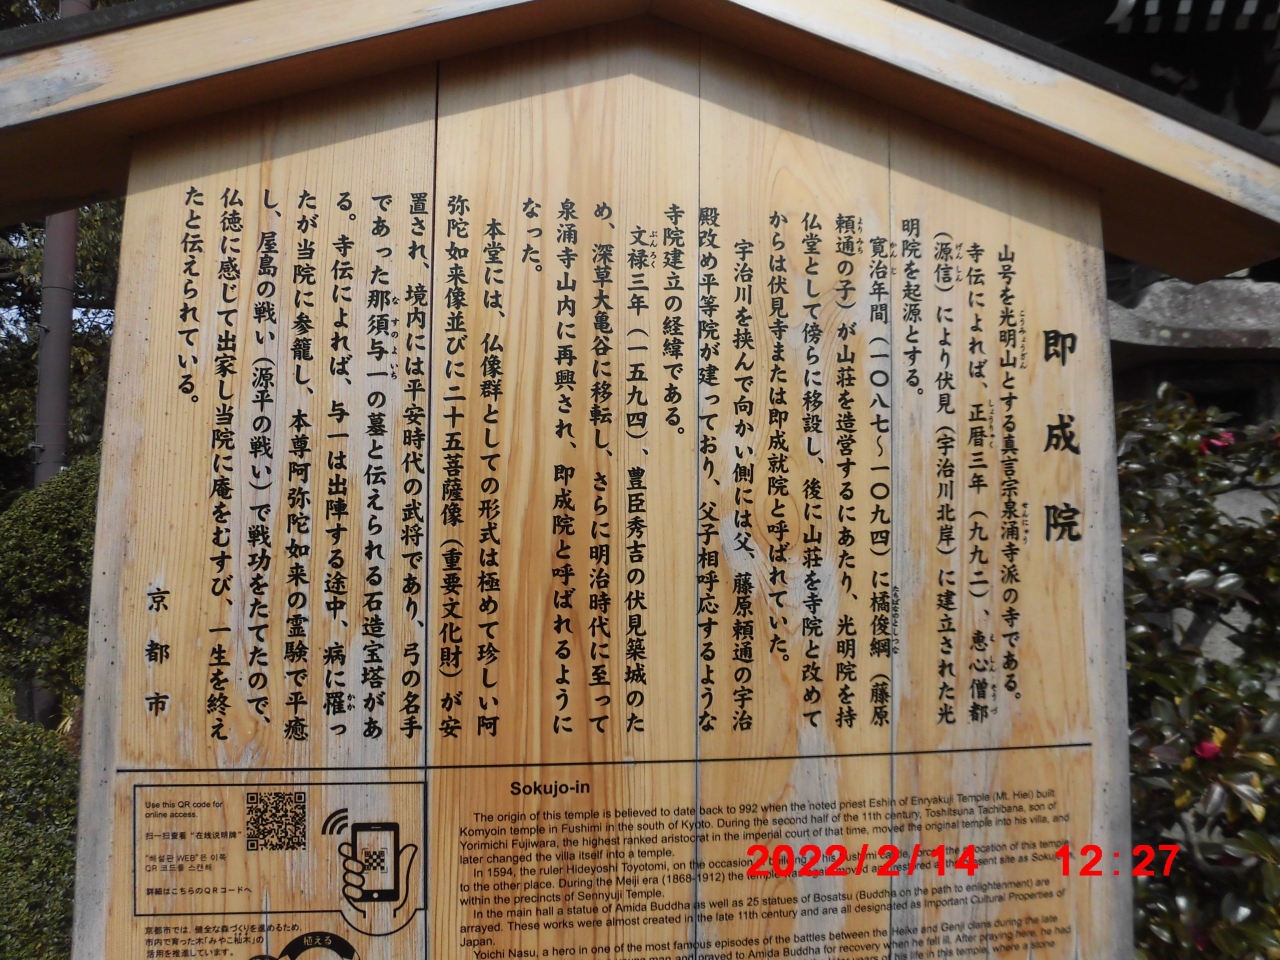 即成院
山号を光明山とする真言宗泉涌寺派の寺である。
寺伝によれば、正暦三年(九九二)、恵心僧都
(源信)により伏見(宇治川北岸)に建立された光
明院を起源とする。
寛治年間(一〇八七～一〇九四)に橘俊綱(藤原
頼通の子)が山荘を造営するにあたり、光明院を持
仏堂として傍らに移設し、後に山荘を寺院と改めて
からは伏見寺または即成就院と呼ばれていた。
宇治川を挟んで向かい側には父、藤原頼通の宇治
殿改め平等院が建っており、父子相呼応するような
寺院建立の経緯である。
文禄三年(一五九四)、豊臣秀吉の伏見築城のた
め、深草大亀谷に移転し、さらに明治時代に至って
泉涌寺山内に再興され、即成院と呼ばれるように
なった。
本堂には、仏像群としての形式は極めて珍しい阿
弥陀如来像並びに二十五菩薩像(重要文化財)が安
置され、境内には平安時代の武将であり、弓の名手
であった那須与一の墓と伝えられる石造宝塔があ
る。寺伝によれば、与一は出陣する途中、病に罹っ
たが当院に参籠し、本尊阿弥陀如来の霊験で平癒
し、屋島の戦い(源平の戦い)で戦功をたてたので、
仏徳に感じて出家し当院に庵をむすび、一生を終え
たと伝えられている。
京都市
Sokujo-in
The origin of this temple is believed to date back to 992 when the noted priest Eshin of Enryakuji Temple (Mt. Hiei) built
Komyoin temple in Fushimi in the south of Kyoto. During the second half of the 11th century, Toshitsuna Tachibana, son of
Yorimichi Fujiwara, the highest ranked aristocrat in the imperial court of that time, moved the original temple into his villa, and
later changed the villa itself into a temple.
In 1594, the ruler Hideyoshi Toyotomi, on the occasion of building his Fushimi Castle, forced the relocation of this temple
to the other place. During the Meiji era (1868-1912) the temple was again moved and restored at the present site as Sokujo-in
within the precincts of Sennyuji Temple.
In the main hall a statue of Amida Buddha as well as 25 statues of Bosatsu (Buddha on the path to enlightenment) are
arrayed. These works were almost created in the late 11th century and are all designated as Important Cultural Properties of
Japan.
Yoichi Nasu, a hero in one of the most famous episodes of the battles between the Heike and Genji clans during the late
young man and prayed to Amida Buddha for recovery when he fell ill. After praying here, he had
years of his life in this temple, where a stone
Use this QR code for
online access.
扫一扫查看 "在线说明牌"
"해설판 WEB"은 이쪽
QR 코드를 스캔해
詳細はこちらのQRコードへ
京都市では、健全な森づくりを進めるため、
市内で育った木「みやこ杣木」の
活用を推進しています。
植える
2022/2/14 12:27